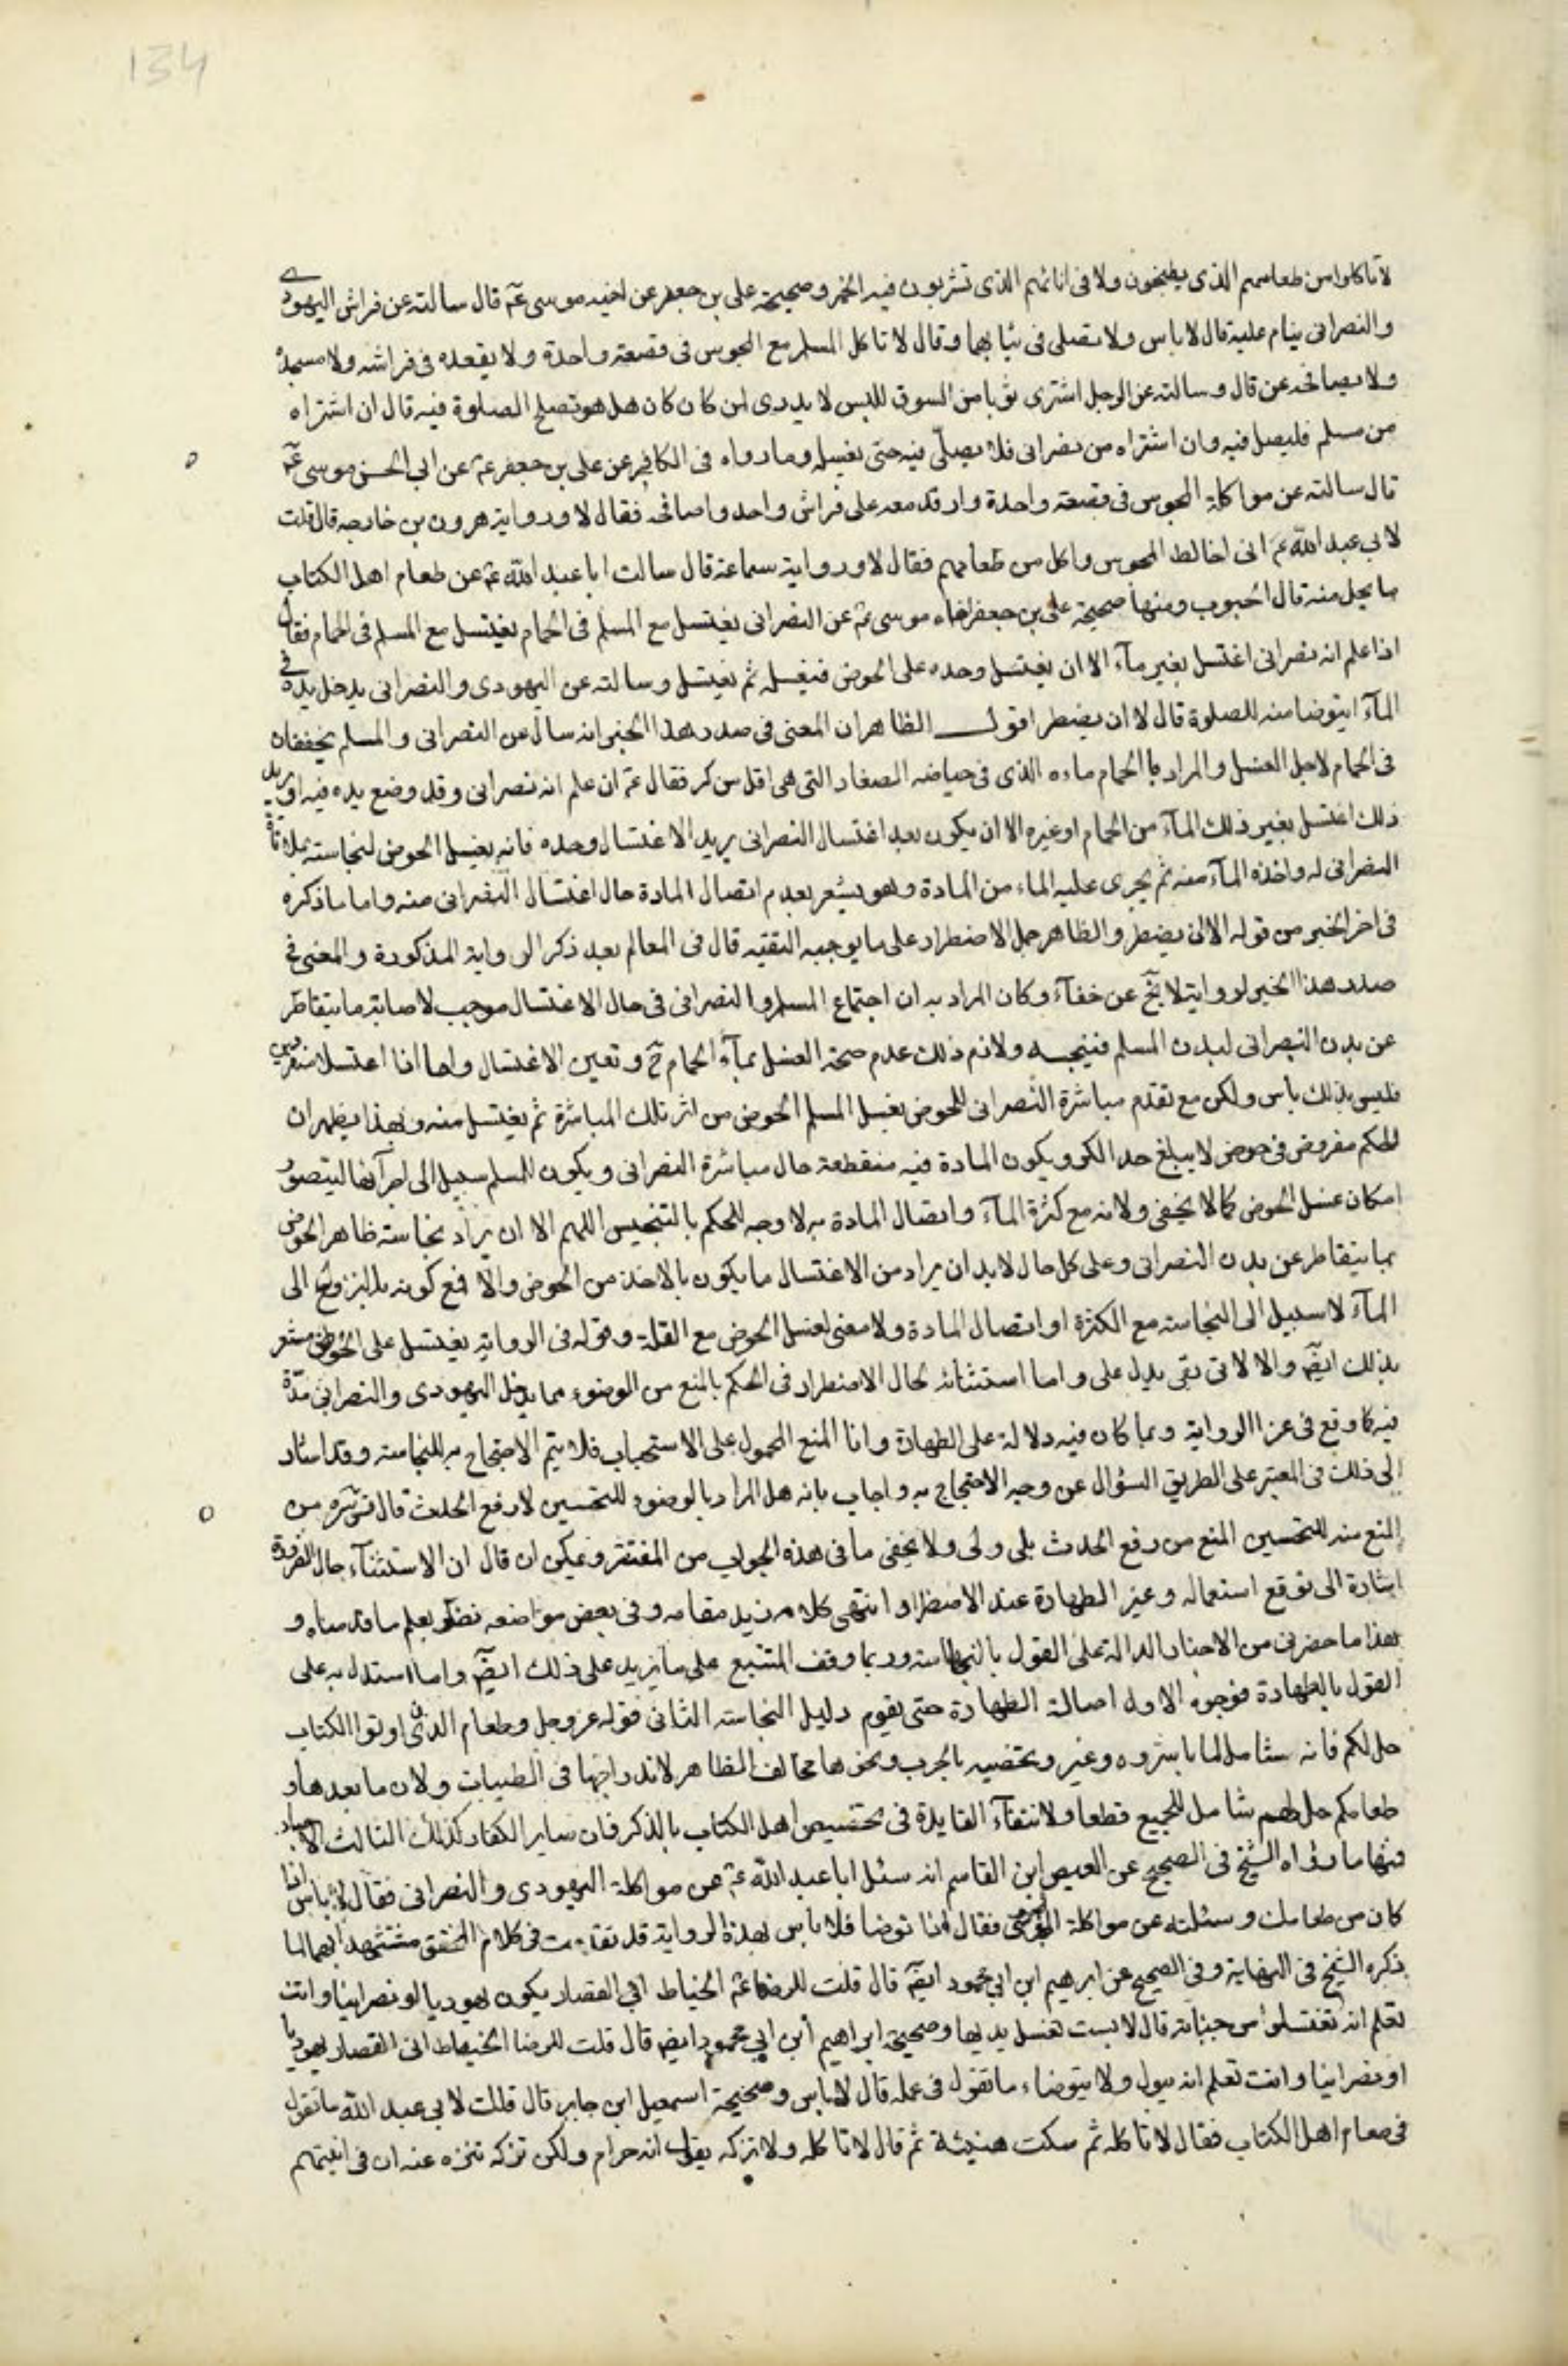 134
لا تاكلوا من طعامهم الذى يطبخون ولا فى انائهم الذى تشربون فيه الخمر وصحيحة على بن جعفر عن اخيه موسى عم قال سالته عن فراش اليهودى
والنصرانى ينام عليه قال لا باس ولا يصلى فى ثيابهما وقال لا تاكل المسلم مع المجوس فى قصعة واحدة ولا يقعده فى فراشه ولا مسجده
ولا يصافحه عن قال وسالته عن الرجل اشترى ثوبا من السوق للبس لا يدرى لمن كان كان هل هو تصلح الصلوة فيه قال ان اشتراه
من مسلم فليصل فيه وان اشتراه من نصرانى فلا يصلّى فيه حتى يغسله وما رواه فى الكافى عن على بن جعفر عم عن ابى الحسن موسى عم
قال سالته عن مواكلة المجوس فى قصعة واحدة وارقد معه على فراش واحد واصافحه فقال لا ورواية هرون بن خارجه قال قلت
لابى عبد اللّه عم انى اخالط المجوس واكل من طعامهم فقال لا ورواية سماعة قال سالت ابا عبد اللّه عم عن طعام اهل الكتاب
ما يحل منه قال الحبوب ومنها صحيحة على بن جعفر اخاه موسى عم عن النصرانى يغتسل مع المسلم فى الحمام يغتسل مع المسلم فى الحمام فقال
اذا علم انه نصرانى اغتسل بغير مآء الا ان يغتسل وحده على الحوض فيغسله ثم يغتسل وسالته عن اليهودى والنصرانى يدخل يده فى
المآء ايتوضا منه للصلوة قال لا ان يضطر اقول الظاهر ان المعنى فى صدر هذا الخبر انه سال عن النصرانى والمسلم
فى الحمام لاجل الغسل والمراد با الحمام ماءه الذى فى حياضه الصغار التى هى اقل من كر فقال عم ان علم انه نصرانى وقد وضع يده فيه او يريد
ذلك اغتسل بغير ذلك المآء من الحمام او غيره الا ان يكون بعد اغتسال النصرانى يريد الاغتسال وحده فانه يغسل الحوض لنجاسته بملاقاة
النصرانى له واخذه المآء منه ثم يجرى عليه الماء من المادة وهو يشعر بعدم اتصال المادة حال اغتسال النصرانى منه واما ما ذكره
فى اخر الخبر من قوله الا ان يضطر والظاهر حمل الاضطرار على ما يوجبه التقيه قال فى المعالم بعد ذكر الرواية المذكورة والمعنى فى
صدر هذا الخبر لرواية لا يخ عن خفآء وكان المراد به ان اجتماع المسلم والنصرانى فى حال الاغتسال موجب لاصابة ما يتقاطر
عن بدن النصرانى لبدن المسلم فينجسه ولازم ذلك عدم صحة الغسل بمآء الحمام ح وتعين الاغتسال واما اذا اغتسلا منفردين
فليس بذلك باس ولكن مع تقدم مباشرة النصرانى للحوض يغسل المسلم الحوض من اثر تلك المباشرة ثم يغتسل منه وبهذا يظهر ان
الحكم مفروض فى حوض لا يبلغ حد الكر ويكون المادة فيه منقطعة حال مباشرة النصرانى ويكون للمسلم سبيل الى اجرآئها ليتصور
امكان غسل الحوض كما لا يخفى ولانه مع كثرة المآء واتصال المادة به لا وجه للحكم بالتنجيس اللهم الا ان يراد نجاسة ظاهر الحوض
بما يتقاطر عن بدن النصرانى وعلى كل حال لابد ان يراد من الاغتسال ما يكون بالاخذ من الحوض والا فمع كونه الى
المآء لا سبيل الى النجاسة مع الكثرة او اتصال المادة ولا معنى لغسل الحوض مع القلة وقوله فى الرواية يغتسل على الحوض مشعر
بذلك ايضا والا يدل على واما استثنائه لحال الاضطرار فى الحكم بالمنع من الوضوء مما يدخل اليهودى والنصرانى
فيه كما وقع فى الرواية وبما كان فيه دلالة على الطهارة وانا المنع المحمول على الاستحباب فلا يتم الاحتجاج به للنجاسته وقد اشار
الى ذلك فى المعتبر على الطريق السؤال عن وجه الاحتجاج به واجاب بانه هل المراد بالوضوء للتحسين لا رفع الحدث قال من
المنع منه للتحسين المنع من رفع الحدث بلى ولى ولا يخفى ما فى هذه الجواب من ويمكن ان قال ان الاستثنآء حال الضرورة
اشارة الى توقع استعماله وغير الطهارة عند الاضطرار انتهى كلامه زيد مقامه وفى بعض مواضعه نظر يعلم ما قدمناه و
هذا ما حضرنى من الاخبار الدالة على القول بالنجاسته وربما وقف المتتبع على ما يزيد على ذلك ايضا واما استدل به على
القول بالطهارة فوجوه الاول اصالة الطهارة حتى يقوم دليل النجاسته الثانى قوله عز وجل وطعام الذين اوتوا الكتاب
حل لكم فانه شامل لما باشروه وغيره وتخصيه بالحبوب ونحوها مخالف الظاهر لاندراجها فى الطيبات ولان ما بعدها و
طعامكم حل لهم شامل للجميع قطعا ولانتفآء الفايدة فى تخصيص اهل الكتاب بالذكر فان ساير الكفار كذلك الثالث الاخبار
فمنها ما رواه الشيخ فى الصحيح عن العيص ابن القاسم انه سئل ابا عبد اللّه عم عن مواكلة اليهودى والنصرانى فقال لا باس اذا
كان من طعامك وسئلته عن مواكلة المجوسى فقال اذا توضا فلا باس بهذه الرواية قد تقدمت فى كلام المحقق مستشهدا بهما لما
ذكره الشيخ فى النهاية وفى الصحيح عن ابرهيم ابن ابى محمود ايضا قال قلت للرضا عم الخياط او القصار يكون يهوديا او نصرانيا وانت
تعلم انه جنابة قال لا بست تغسل يديها وصحيحة ابراهيم ابن ابى محمود ايضا قال قلت للرضا الخياط انى القصار يهوديا
او نصرانيا وانت تعلم انه يبول ولا يتوضاء ما تقول فى عمله قال لا باس وصحيحة اسمعيل ابن جابر قال قلت لابى عبد اللّه ما تقول
فى طعام اهل الكتاب فقال لا تاكله ثم سكت هنيئة ثم قال لا تاكله ولا تتركه يقول انه حرام ولكن تركه تنزه عنه ان فى انيتهم